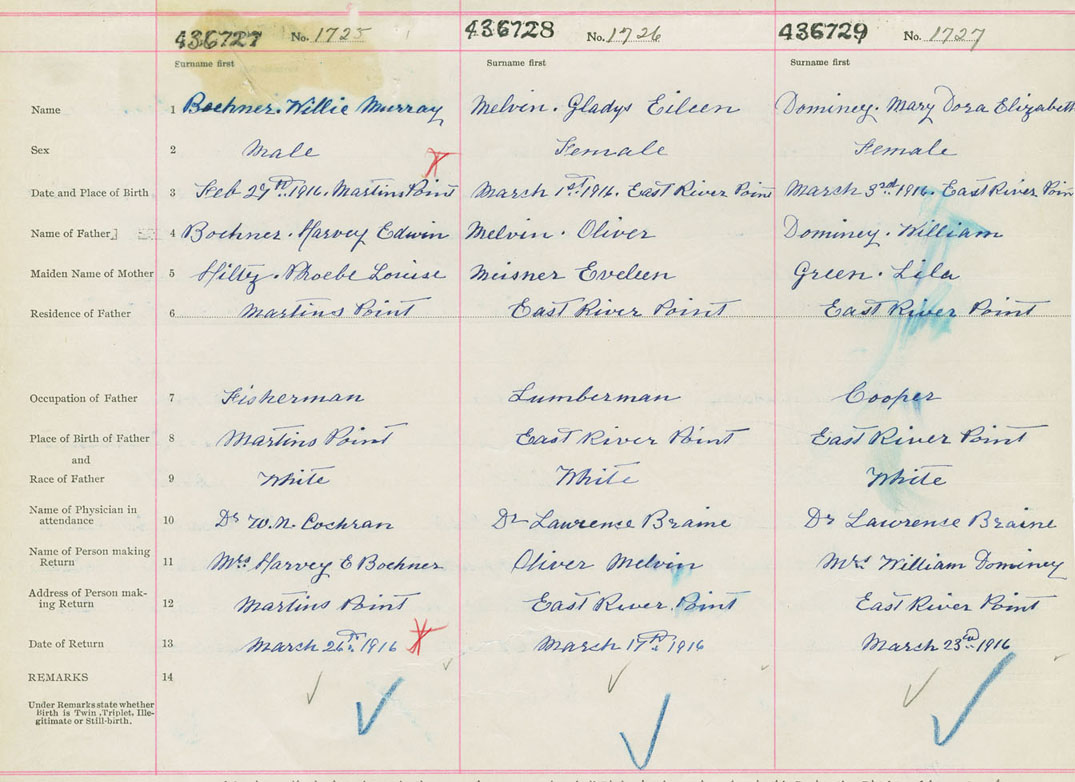 436727 No. 1725 436728 No. 1726 436729 No. 1727
Surname first Surname first Surname first
Name 1 Boehner. Willie Murray Melvin. Gladys Eileen Dominey. Mary Dora Elizabeth
Sex 2 Male Female Female
Date and Place of Birth 3 Feb 27th 1916. Martins Point March 1st 1916. East River Point March 3rd 1916. East River Poin
Name of Father 4 Boehner. Harvey Edwin Melvin. Oliver Dominey. William
Maiden Name of Mother 5 Hiltz. Phoebe Louise Meisner Eveleen Green. Lila
Residence of Father 6 Martins Point East River Point East River Point
Occupation of Father 7 Fisherman Lumberman Cooper
Place of Birth of Father 8 Martins Point East River Point East River Point
and
Race of Father 9 White White White
Name of Physician in
attendance 10 Dr W.N. Cochran Dr Lawrence Braine Dr Lawrence Braine
Name of Person making
Return 11 Mrs Harvey E Boehner Oliver Melvin Mrs William Dominey
Address of Person mak-
ing Return 12 Martins Point East River Point East River Point
Date of Return 13 March 26th 1916 March 17th 1916 March 23rd 1916
REMARKS 14
Under Remarks state whether
Birth is Twin, Triplet, Ille-
gitimate or Still-birth.